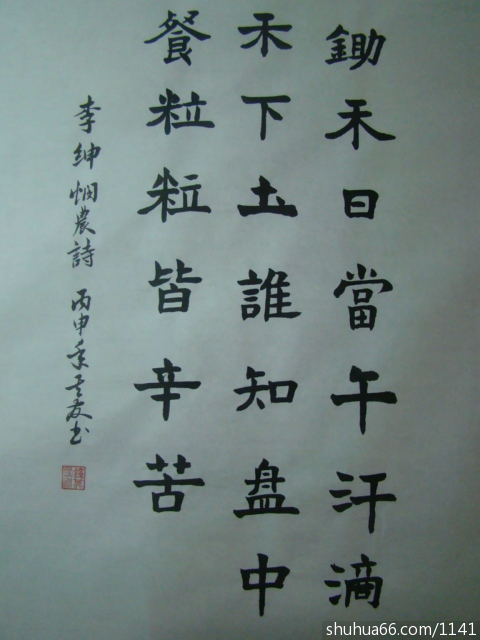 鋤禾日當午汗滴
禾下土誰知盘中
餐粒粒皆辛苦
李绅悯農詩 丙申年 友书
shuhua66.com/1141